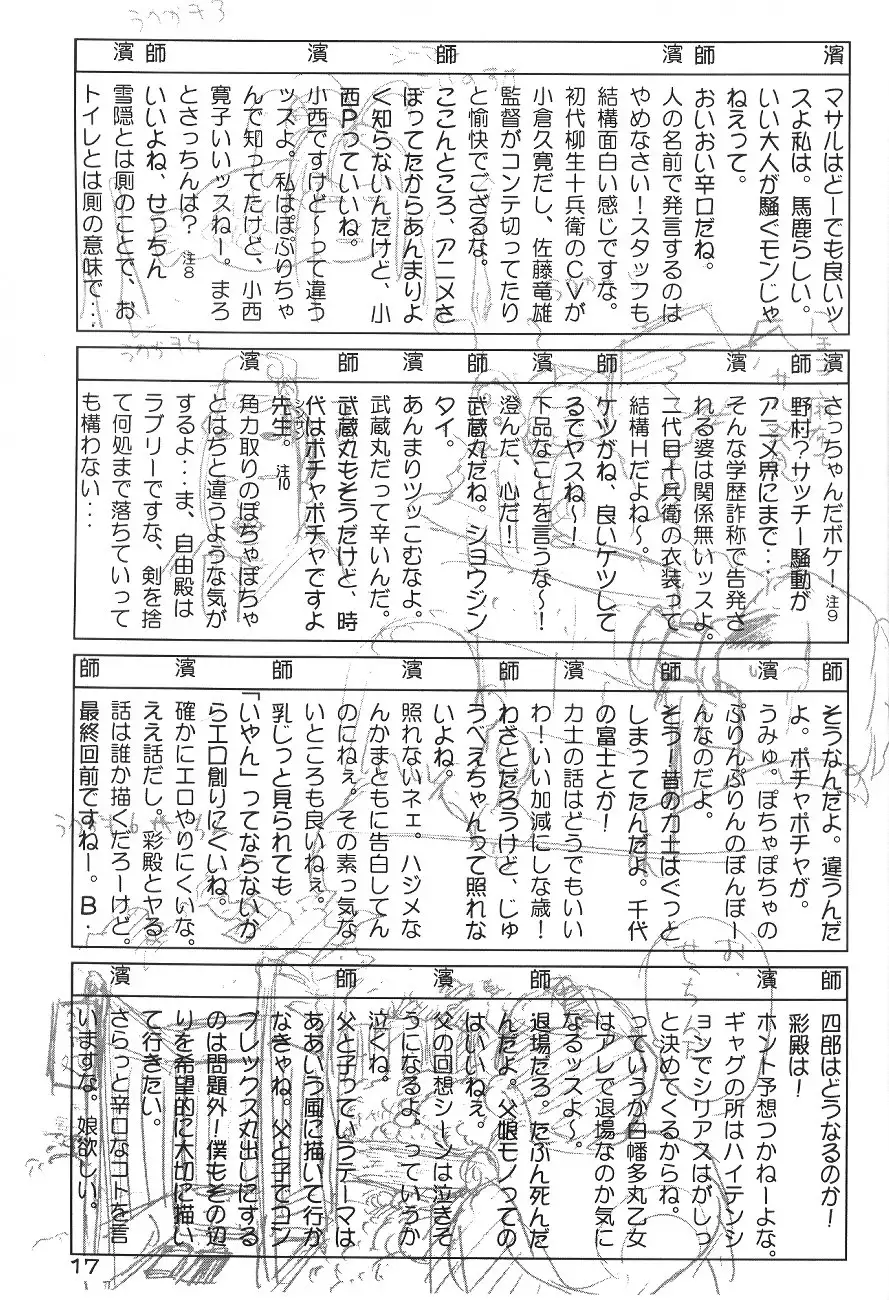 うめか字3
濱
師
濱
師
濱
師
濱
マサルはどーでも良いッ
スよ私は。馬鹿らしい。
いい大人が騒ぐモンじゃ
ねえって。
おいおい辛口だね。
人の名前で発言するのは
やめなさい！スタッフも
結構面白い感じですな。
初代柳生十兵衛のＣＶが
小倉久寛だし、佐藤竜雄
監督がコンテ切ってたり
と愉快でござるな。
ここんところ、アニメさ
ぼってたからあんまりよ
く知らないんだけど、小
西Ｐっていいね。
小西ですけど〜って違う
ッスよ。私はぽぷりちゃ
んで知ってたけど、小西
寛子いいッスねー。まろ
とさっちんは？ 注8
いいよね、せっちん
雪隠とは厠のことで、お
トイレとは厠の意味で・・・
濱
師
濱
師
濱
師
濱
師
濱
さっちゃんだボケ！ 注9
野村？サッチー騒動が
アニメ界にまで・・・
そんな学歴詐称で告発さ
れる婆は関係無いッスよ。
二代目十兵衛の衣装って
結構Ｈだよね〜。
ケツがね、良いケツして
るでヤスね〜！
下品なことを言うな〜！
澄んだ、心だ！
武蔵丸だね。ショウジン
タイ。
あんまりツッこむなよ。
武蔵丸だって辛いんだ。
武蔵丸もそうだけど、時
代はポチャポチャですよ
先生。 注10
シンサン
角力取りのぽちゃぽちゃ
とはちと違うような気が
するよ・・・ま、自由殿は
ラブリーですな、剣を捨
て何処まで落ちていって
も構わない・・・
師
濱
師
濱
師
濱
師
濱
師
そうなんだよ。違うんだ
よ。ポチャポチャが。
うみゅ。ぽちゃぽちゃの
ぷりんぷりんのぼんぼー
んなのだよ。
そう！昔の力士はぐっと
しまってたんだよ。千代
の富士とか！
力士の話はどうでもいい
わ！いい加減にしな歳！
わざとだろうけど、じゅ
うべえちゃんって照れな
いよね。
照れないネェ。ハジメな
んかまともに告白してん
のにねぇ。その素っ気な
いところも良いねぇ。
乳じっと見られても
「いやん」ってならないか
らエロ創りにくいね。
確かにエロやりにくいな。
ええ話だし。彩殿とヤる
話は誰か描くだろーけど。
最終回前ですねー。Ｂ．
師
濱
師
濱
師
濱
四郎はどうなるのか！
彩殿は！
ホント予想つかねーよな。
ギャグの所はハイテンシ
ョンでシリアスはがしっ
と決めてくるからね。
っていうか白幡多丸乙女
はアレで退場なのか気に
なるッスよ〜。
退場だろ。たぶん死んだ
んだよ。父娘モノっての
はいいねぇ。
父の回想シーンは泣きそ
うになるよ。っていうか
泣くね。
父と子っていうテーマは
ああいう風に描いて行か
なきゃね。父と子でコン
プレックス丸出しにする
のは問題外！僕もその辺
りを希望的に大切に描い
て行きたい。
さらっと辛口なコトを言
いますな。娘欲しい。
17